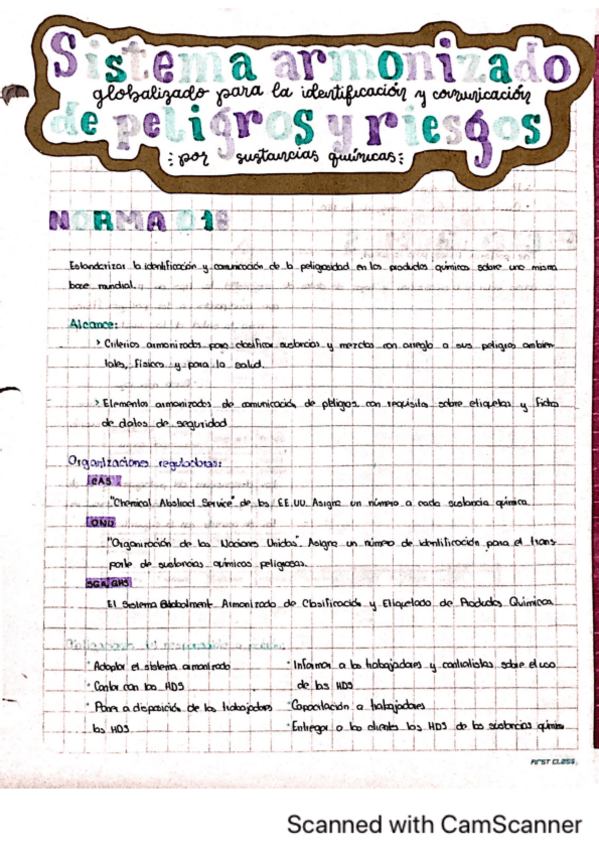 Sistema armonizado
globalizado para la identificación y comunicación
de peligros y riesgos
: por sustancias químicas :
NORMA 018
Estandarizar la identificación y comunicación de la peligrosidad en los productos químicos sobre una misma
base mundial.
Alcance:
> Criterios armonizados para clasificar sustancias y mezclas con arreglo a sus peligros ambien
tales, físicos y para la salud.
> Elementos armonizados de comunicación de peligos, con requisitos sobre etiquetas y ficha
de datos de seguridad
Organizaciones reguladoras:
CAS
"Chemical Abstract Service" de los EE.UU. Asigna un número a cada sustancia química.
ONU
"Organización de las Naciones Unidas". Asigna un número de identificación para el trans
porte de sustancias químicas peligrosas.
SGA, GHS
El Sistema Globalment Armonizado de Clasificación y Etiquetado de Productos Químicos
· Adoptar el sistema armonizado
· Contar con las HDS
· Poner a disposición de los trabajadores
las HDS
· Informar a los trabajadores y contratistas sobre el uso
de las HDS
· Capacitación a trabajadores
· Entregar a los clientes las HDS de las sustancias químic
FIRST CLASS
Scanned with CamScanner